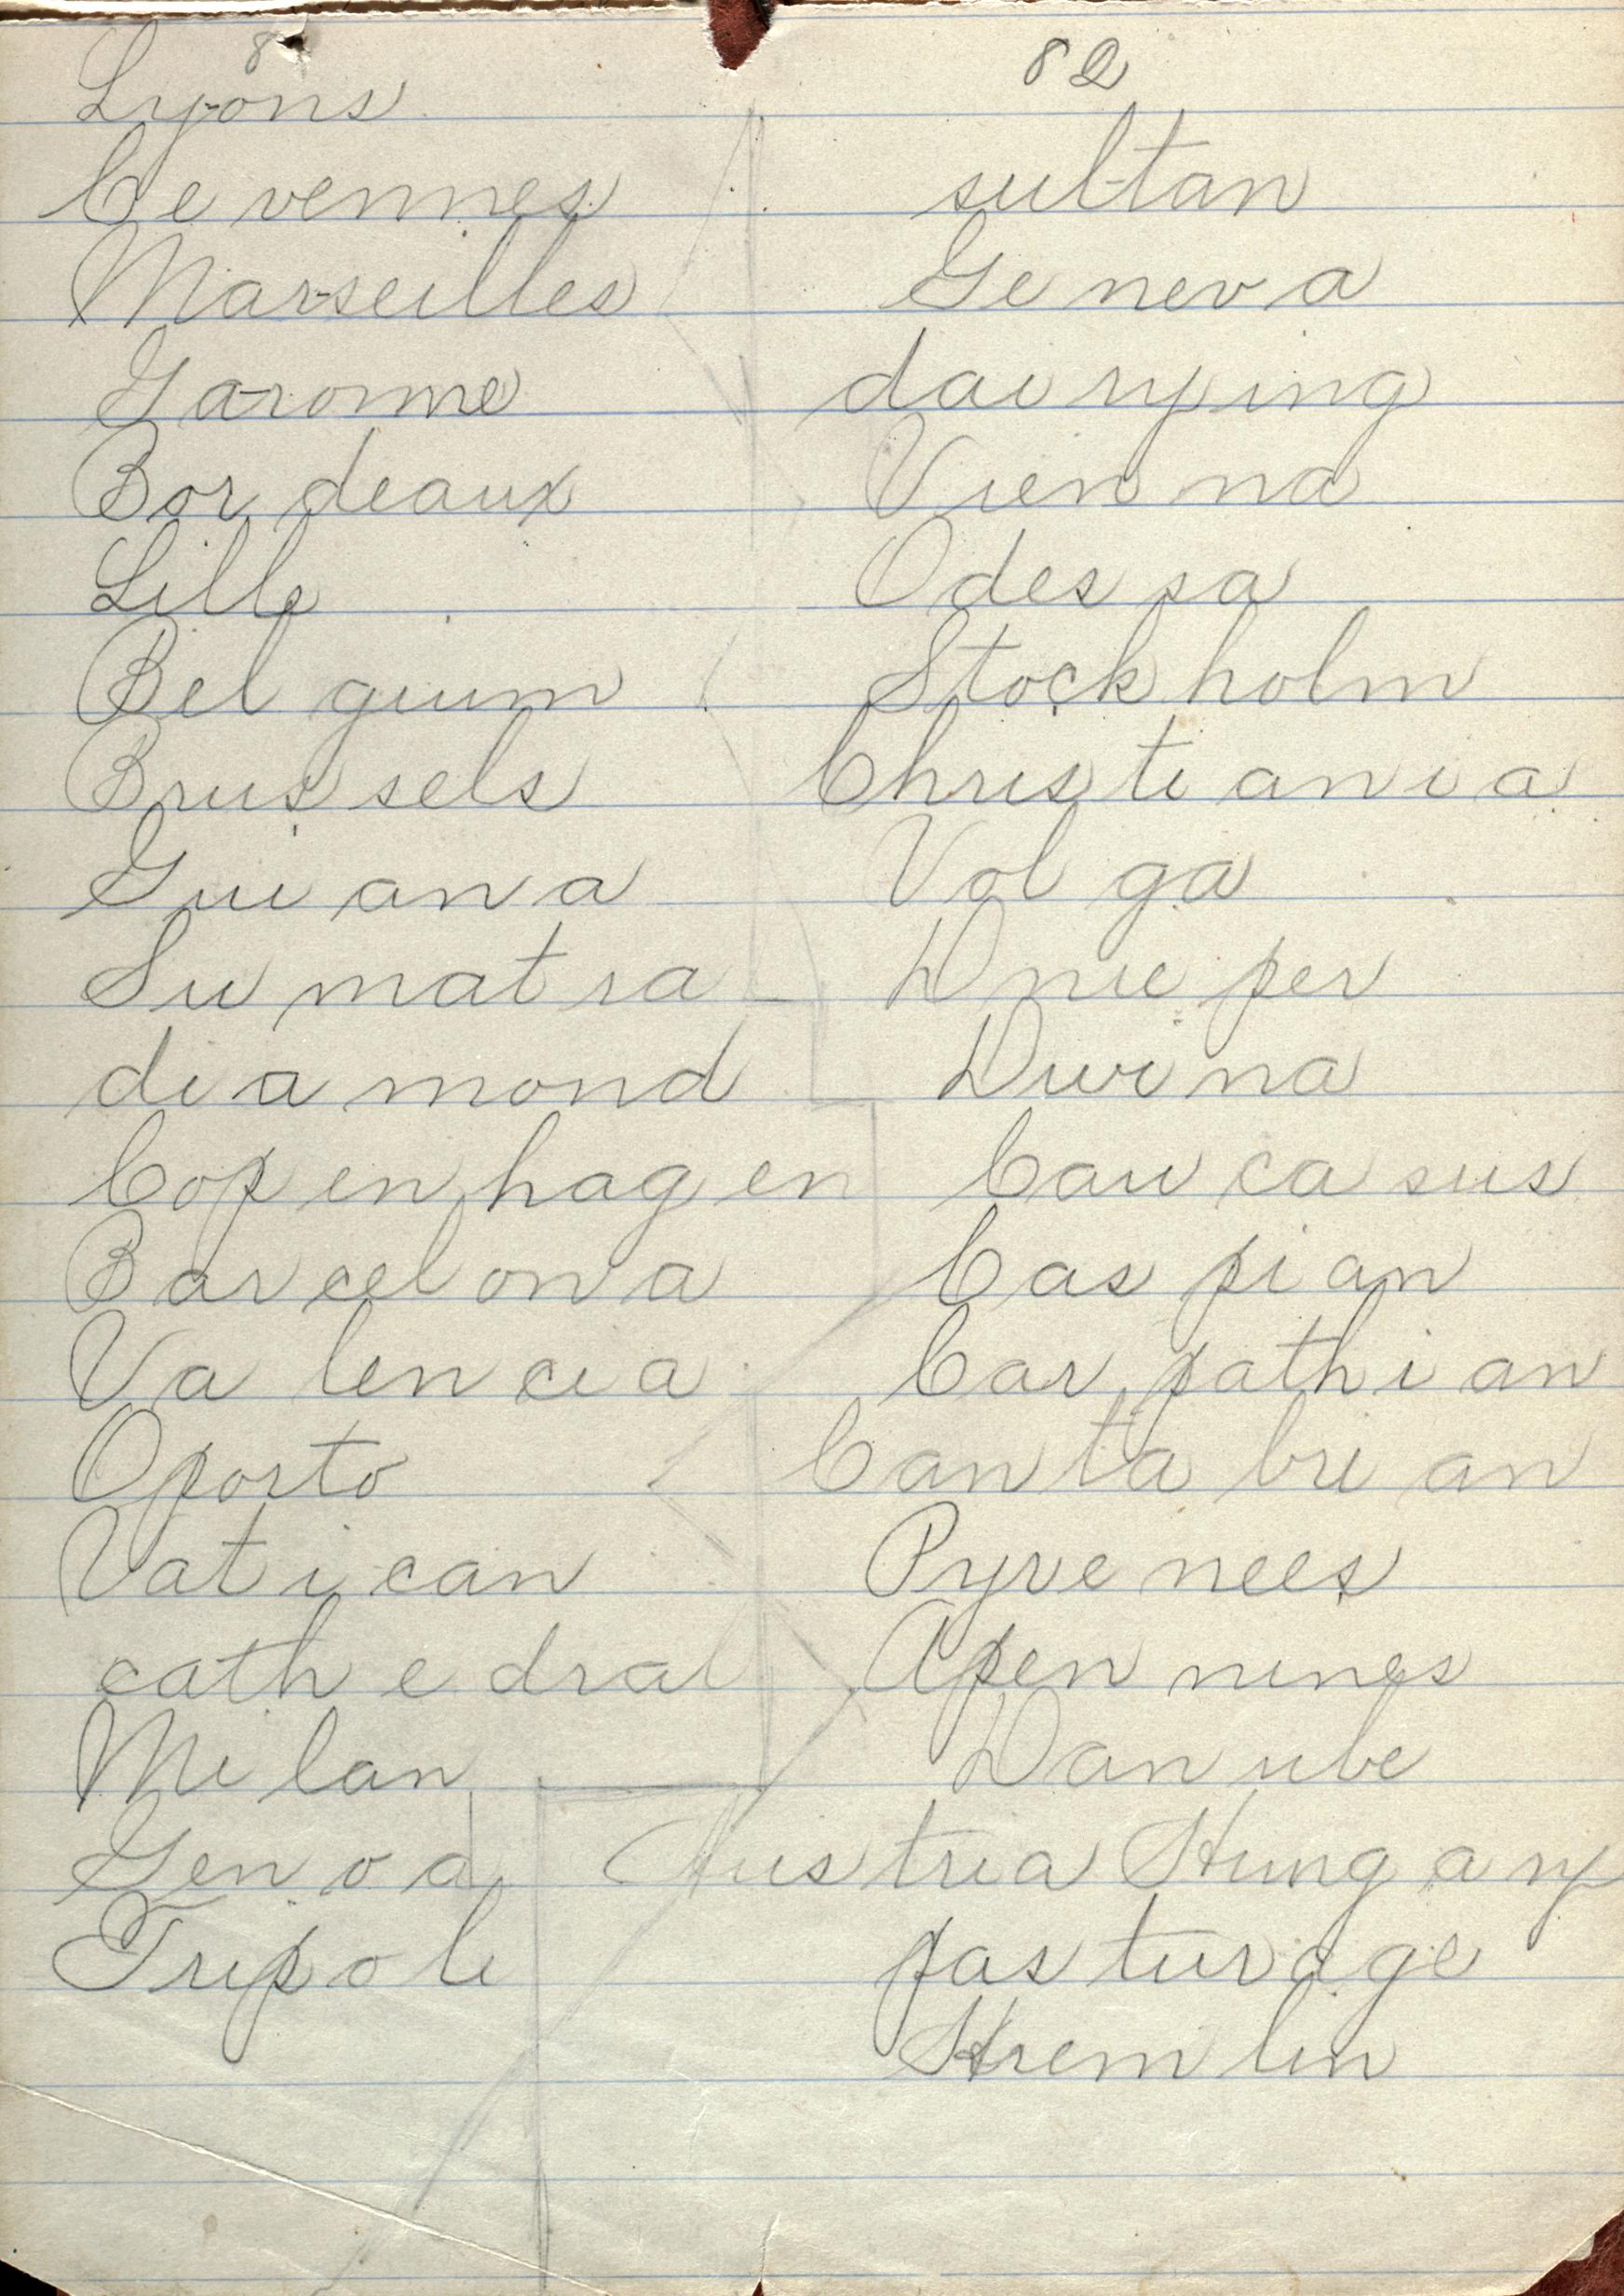 8
Ly-ons
Ce vennes
Mar-seilles
Ga-ronne
Bor deaux
Lille
Bel gium
Brus sels
Gui an a
Su mat ra
di a mond
Cop en hag en
Bar cel on a
Va len ci a
Oporto
Vat i can
cath e dral
Mi lan
Gen o a
Trip o li
82
sul-tan
Ge nev a
dai ry ing
Vien na
Odes sa
Stock holm
Chris ti an i a
Vol ga
Dnie per
Dwi na
Cau ca sus
Cas pi an
Car path i an
Can ta bri an
Pyre nees
Apen nines
Dan ube
Aus tria Hung a ry
pas tur age
Krem lin